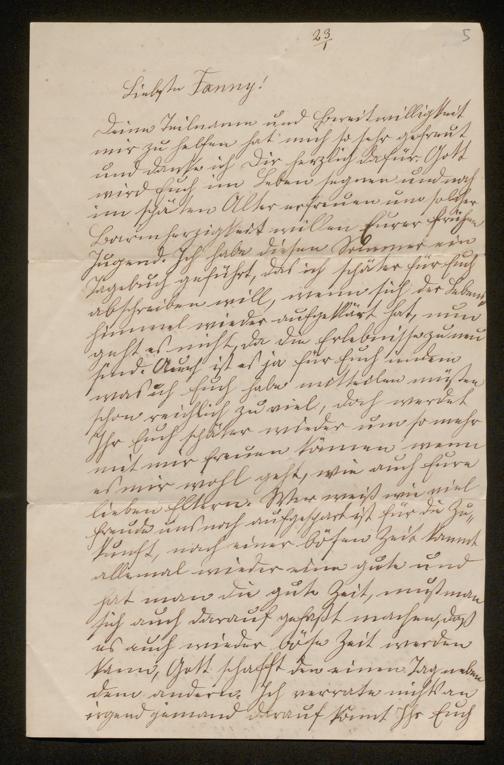 23/1
5
Liebste Fanny!
Deine Teilname und Bereitwilligkeit
mir zu helfen hat mich so sehr gefreut
und danke ich Dir herzlich dafür. Gott
wird Euch im Leben segnen und noch
im späten Alter erfreuen um solcher
Barmherzigkeit willen Eurer frühen
Jugend. Ich habe diesen Sommer ein
Tagebuch geführt, das ich später für Euch
abschreiben will, wenn sich der Lebens-
himmel wieder aufgeklärt hat, nun
geht es nicht, da die Erlebnisse zu neu
sind. Auch ist es ja für Euch indem
was ich Euch habe mitteilen müssen
schon reichlich zu viel, doch werdet
Ihr Euch später wieder um so mehr
mit mir freuen können wenn
es mir wohl geht, wie auch Eure
lieben Eltern. Wer weiß wie viel
Freude uns noch aufgespart ist für die Zu-
kunft, nach einer bösen Zeit kommt
allemal wieder eine gute und
hat man die gute Zeit, muß man
sich auch darauf gefaßt machen, daß
es auch wieder böse Zeit werden
kann, Gott schafft den einen Tag neben
dem andern. Ich verrate nichts an
irgend jemand darauf könnt Ihr Euch